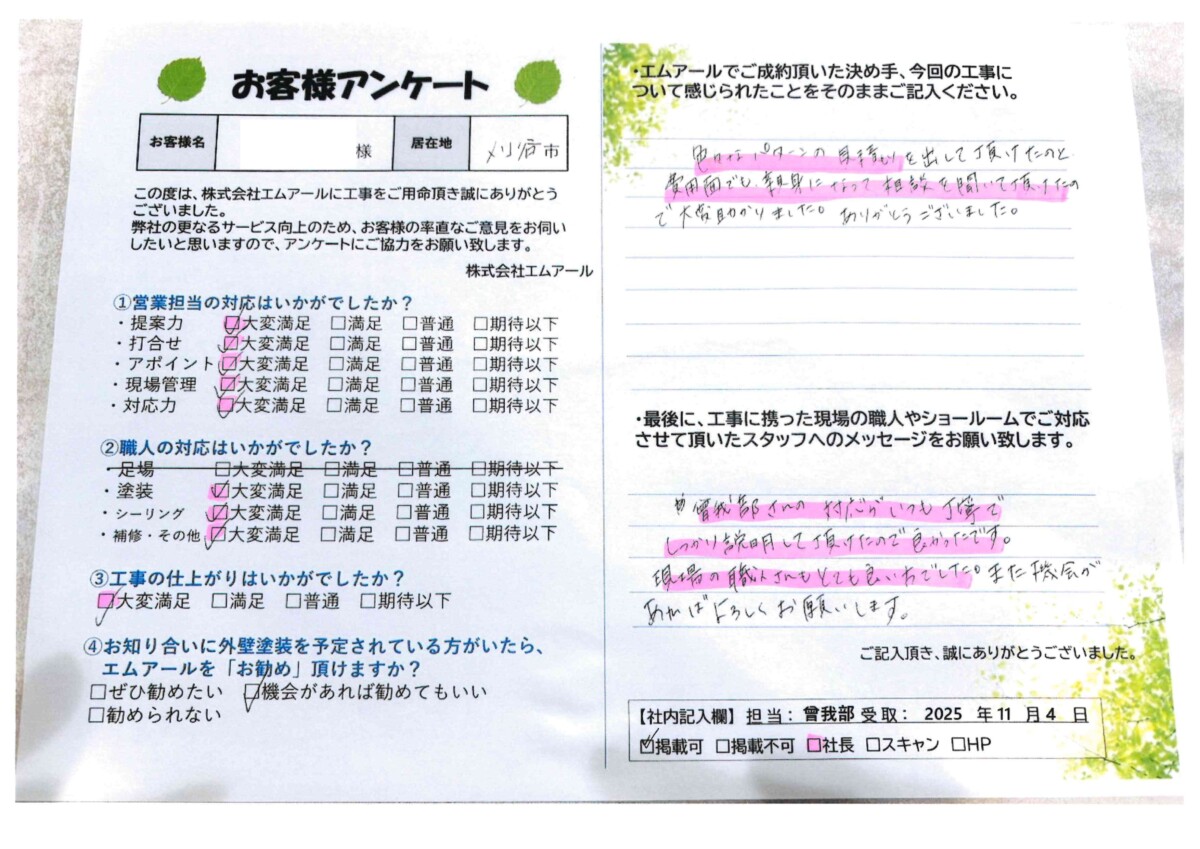 お客様アンケート
お客様名 様 居在地 刈谷市
この度は、株式会社エムアールに工事をご用命頂き誠にありがとう
ございました。
弊社の更なるサービス向上のため、お客様の率直なご意見をお伺い
したいと思いますので、アンケートにご協力をお願い致します。
株式会社エムアール
①営業担当の対応はいかがでしたか？
・提案力 ☑大変満足 □満足 □普通 □期待以下
・打合せ ☑大変満足 □満足 □普通 □期待以下
・アポイント ☑大変満足 □満足 □普通 □期待以下
・現場管理 ☑大変満足 □満足 □普通 □期待以下
・対応力 ☑大変満足 □満足 □普通 □期待以下
②職人の対応はいかがでしたか？
・足場 □大変満足 □満足 □普通 □期待以下
・塗装 ☑大変満足 □満足 □普通 □期待以下
・シーリング ☑大変満足 □満足 □普通 □期待以下
・補修・その他 ☑大変満足 □満足 □普通 □期待以下
③工事の仕上がりはいかがでしたか？
☑大変満足 □満足 □普通 □期待以下
④お知り合いに外壁塗装を予定されている方がいたら、
エムアールを「お勧め」頂けますか？
□ぜひ勧めたい ☑機会があれば勧めてもいい
□勧められない
・エムアールでご成約頂いた決め手、今回の工事に
ついて感じられたことをそのままご記入ください。
色々なパターンの見積もりを出して頂けたのと
費用面でも親身になって相談を聞いて頂けたの
で大変助かりました。ありがとうございました。
・最後に、工事に携った現場の職人やショールームでご対応
させて頂いたスタッフへのメッセージをお願い致します。
曾我部さんの対応がいつも丁寧で
しっかり説明して頂けたので良かったです。
現場の職人さんもとても良い方でした。また機会が
あればよろしくお願いします。
ご記入頂き、誠にありがとうございました。
【社内記入欄】担当：曾我部 受取： 2025 年 11 月 4 日
☑掲載可 □掲載不可 □社長 □スキャン □HP